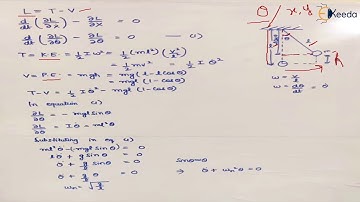 L = T - V
d/dt (∂L/∂ẋ) - ∂L/∂x = 0
d/dt (∂L/∂θ̇) - ∂L/∂θ = 0 — (1)
T = K.E. = 1/2 Iω² = 1/2 (ml²)(v²/l²)
= 1/2 mv² = 1/2 Iθ̇²
V = P.E. = mgh = mg(l - l cosθ)
= mgl (1 - cosθ)
T - V = 1/2 Iθ̇² - mgl (1 - cosθ)
In equation (1)
∂L/∂θ = - mgl sinθ
∂L/∂θ̇ = Iθ̇ = ml²θ̇
Substituting in eq (1)
= 0
lθ̈ + g sinθ = 0
θ̈ + g/l θ = 0
ωn = √(g/l)
sinθ≈θ
⇒ θ̈ + ωn²θ = 0
θ / x, y
Ekeeda
θ
l
h
ω = v/l
ω = dθ/dt = θ̇